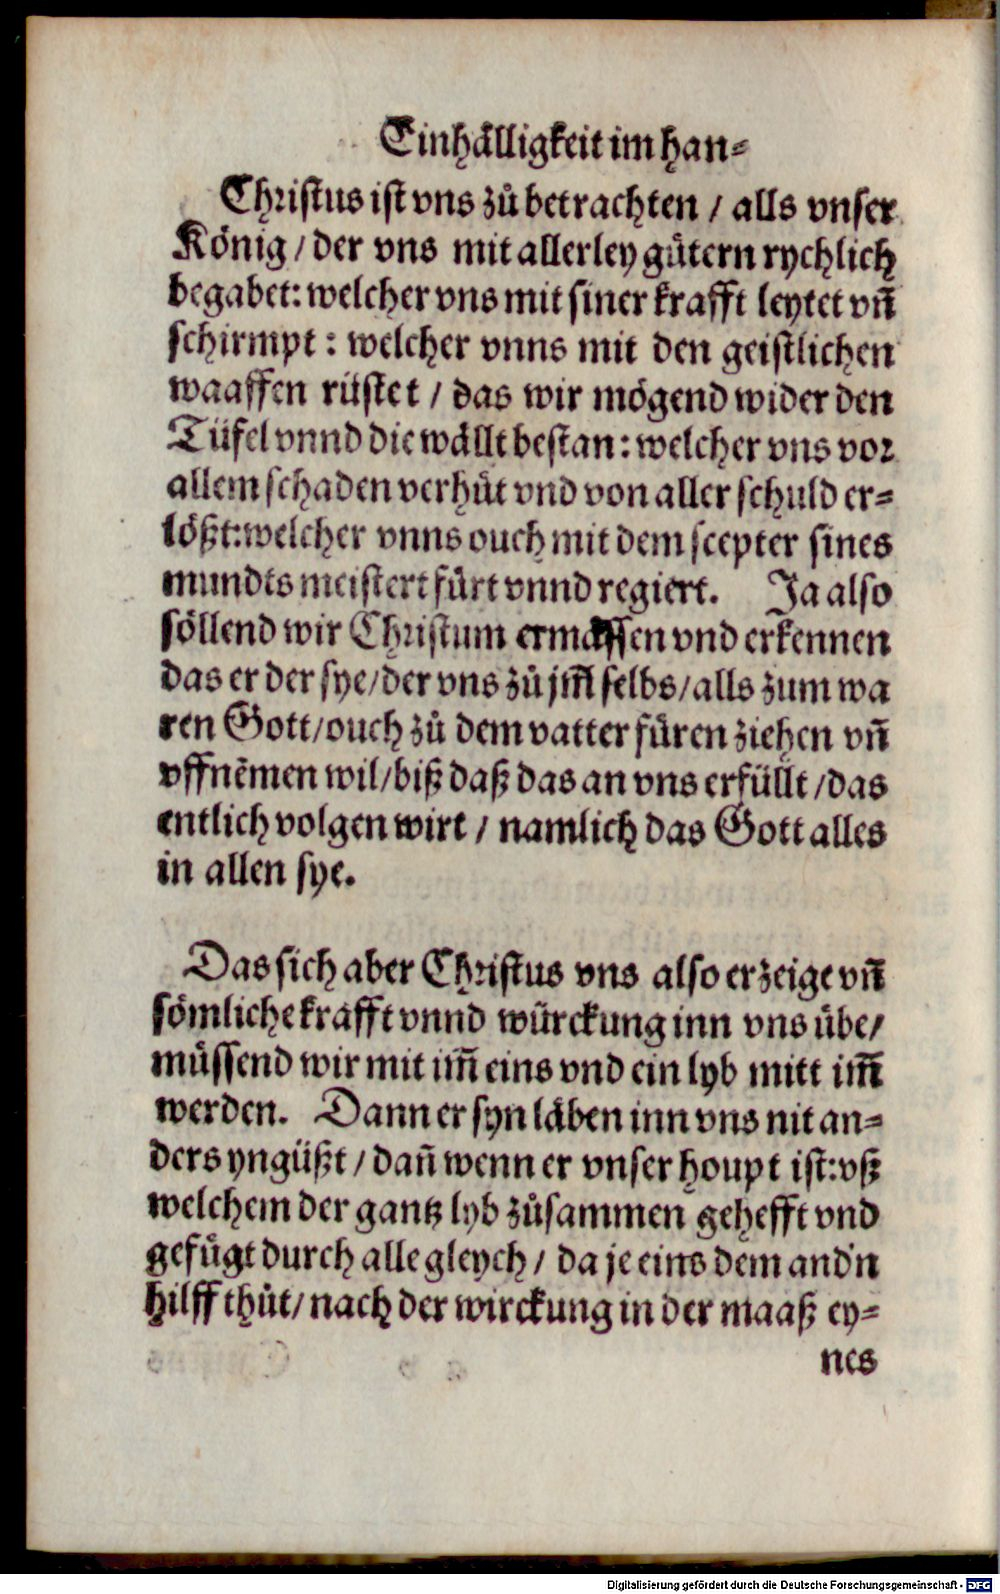 Einhälligkeit im han⸗
Christus ist vns zů betrachten / alls vnser
König / der vns mit allerley gütern rychlich
begabet: welcher vns mit siner krafft leytet vñ
schirmpt : welcher vnns mit den geistlichen
waaffen rüstet / das wir mögend wider den
Tüfel vnnd die wällt bestan: welcher vns vor
allem schaden verhüt vnd von aller schuld er⸗
lößt: welcher vnns ouch mit dem scepter sines
mundts meistert fürt vnnd regiert. Ja also
söllend wir Christum ermässen vnd erkennen
das er der sye / der vns zů jm̃ selbs / alls zum wa
ren Gott / ouch zů dem vatter füren ziehen vñ
vffnẽmen wil / biß daß das an vns erfüllt / das
entlich volgen wirt / namlich das Gott alles
in allen sye.
Das sich aber Christus vns also erzeige vñ
sömliche krafft vnnd würckung inn vns übe /
müssend wir mit im̃ eins vnd ein lyb mitt im̃
werden. Dann er syn läben inn vns nit an⸗
ders yngüßt / dañ wenn er vnser houpt ist: vß
welchem der gantz lyb zůsammen gehefft vnd
gefügt durch alle gleych / da je eins dem and'n
hilff thůt / nach der wirckung in der maaß ey⸗
nes
Digitalisierung gefördert durch die Deutsche Forschungsgemeinschaft - DFG